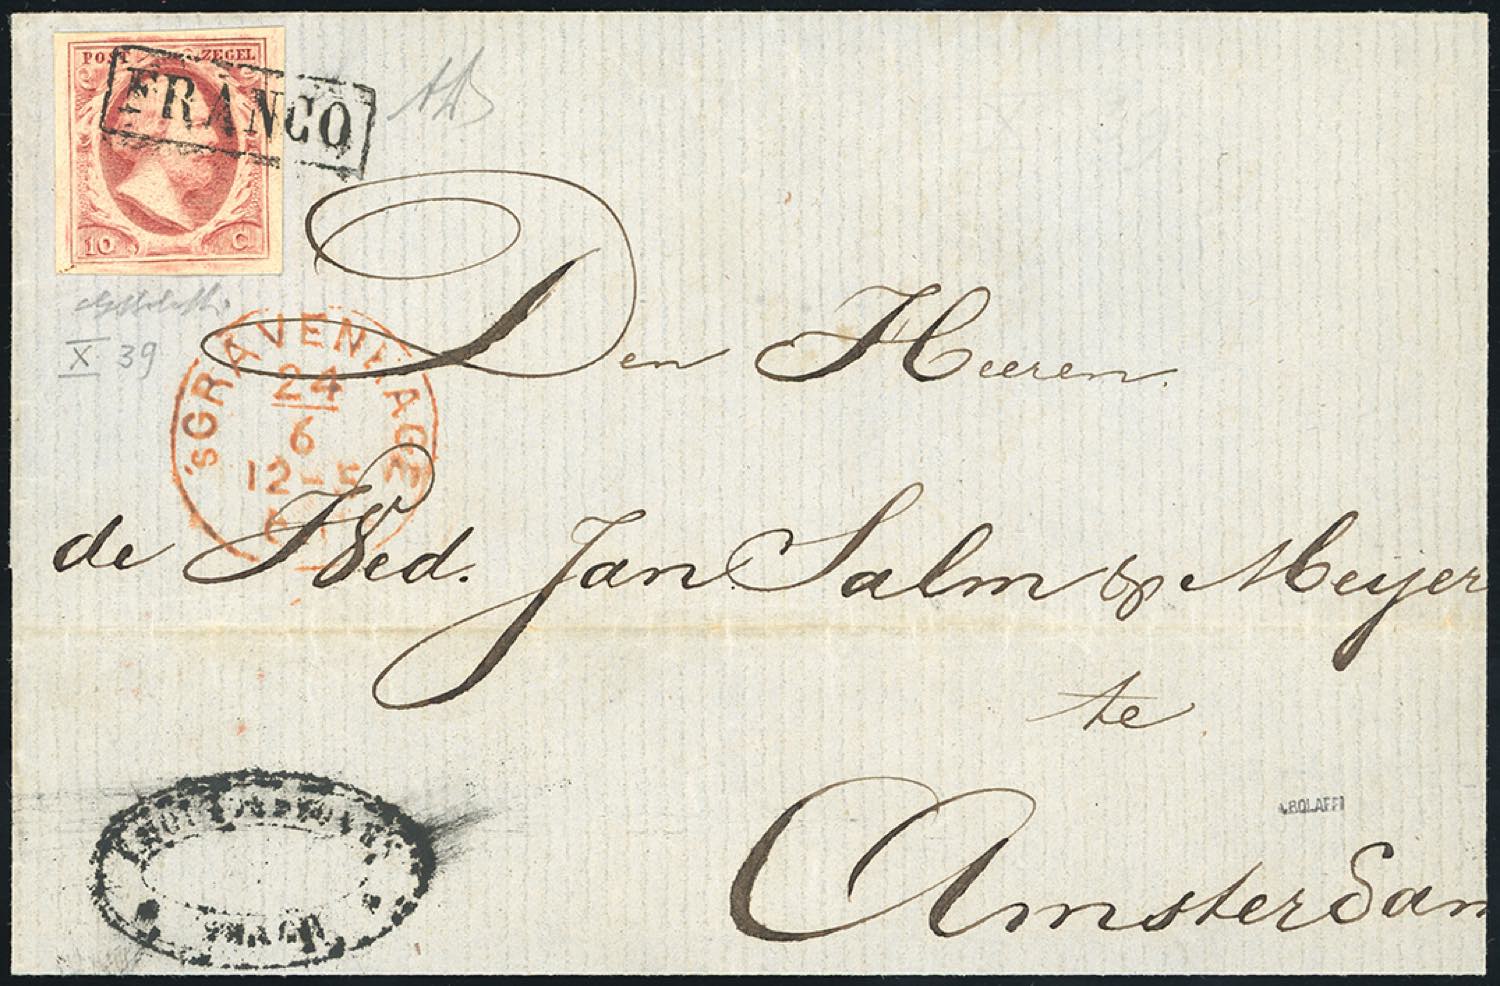 POST ZEGEL
FRANCO
10 C
X 39
'SGRAVENHAGE
24
6
12-5
Den Heeren
de Wed. Jan Salm & Meijer
te
Amsterdam
A.BOLAFFI